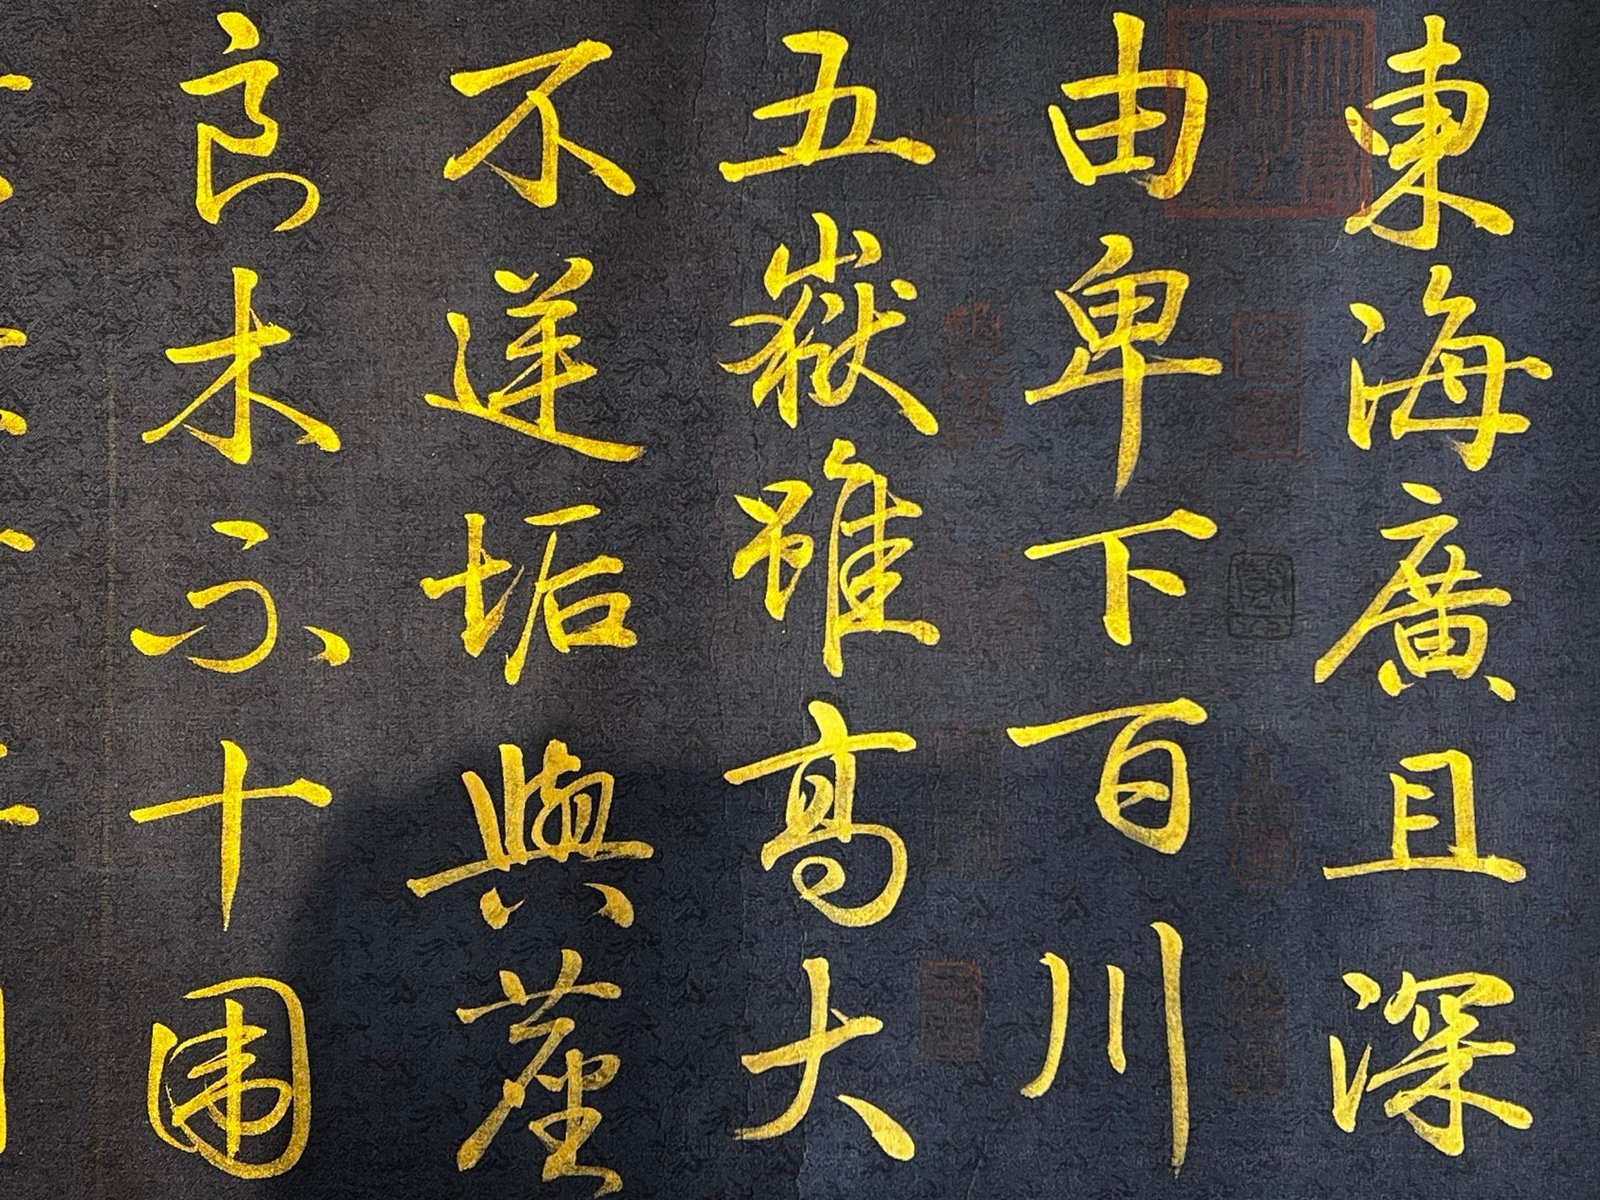 東海廣且深
由卑下百川
五嶽雖高大
不逆垢與塵
良木不十圍